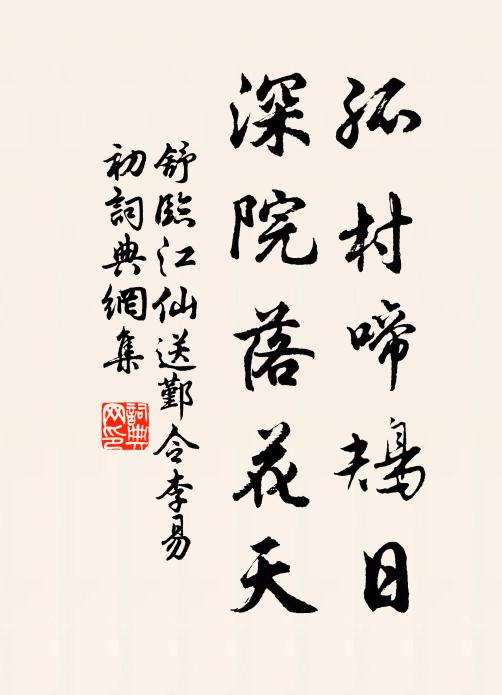 孤村啼鴂日
深院落花天
舒臨江仙送鄞令李易
初詞典網集
詞典
网印